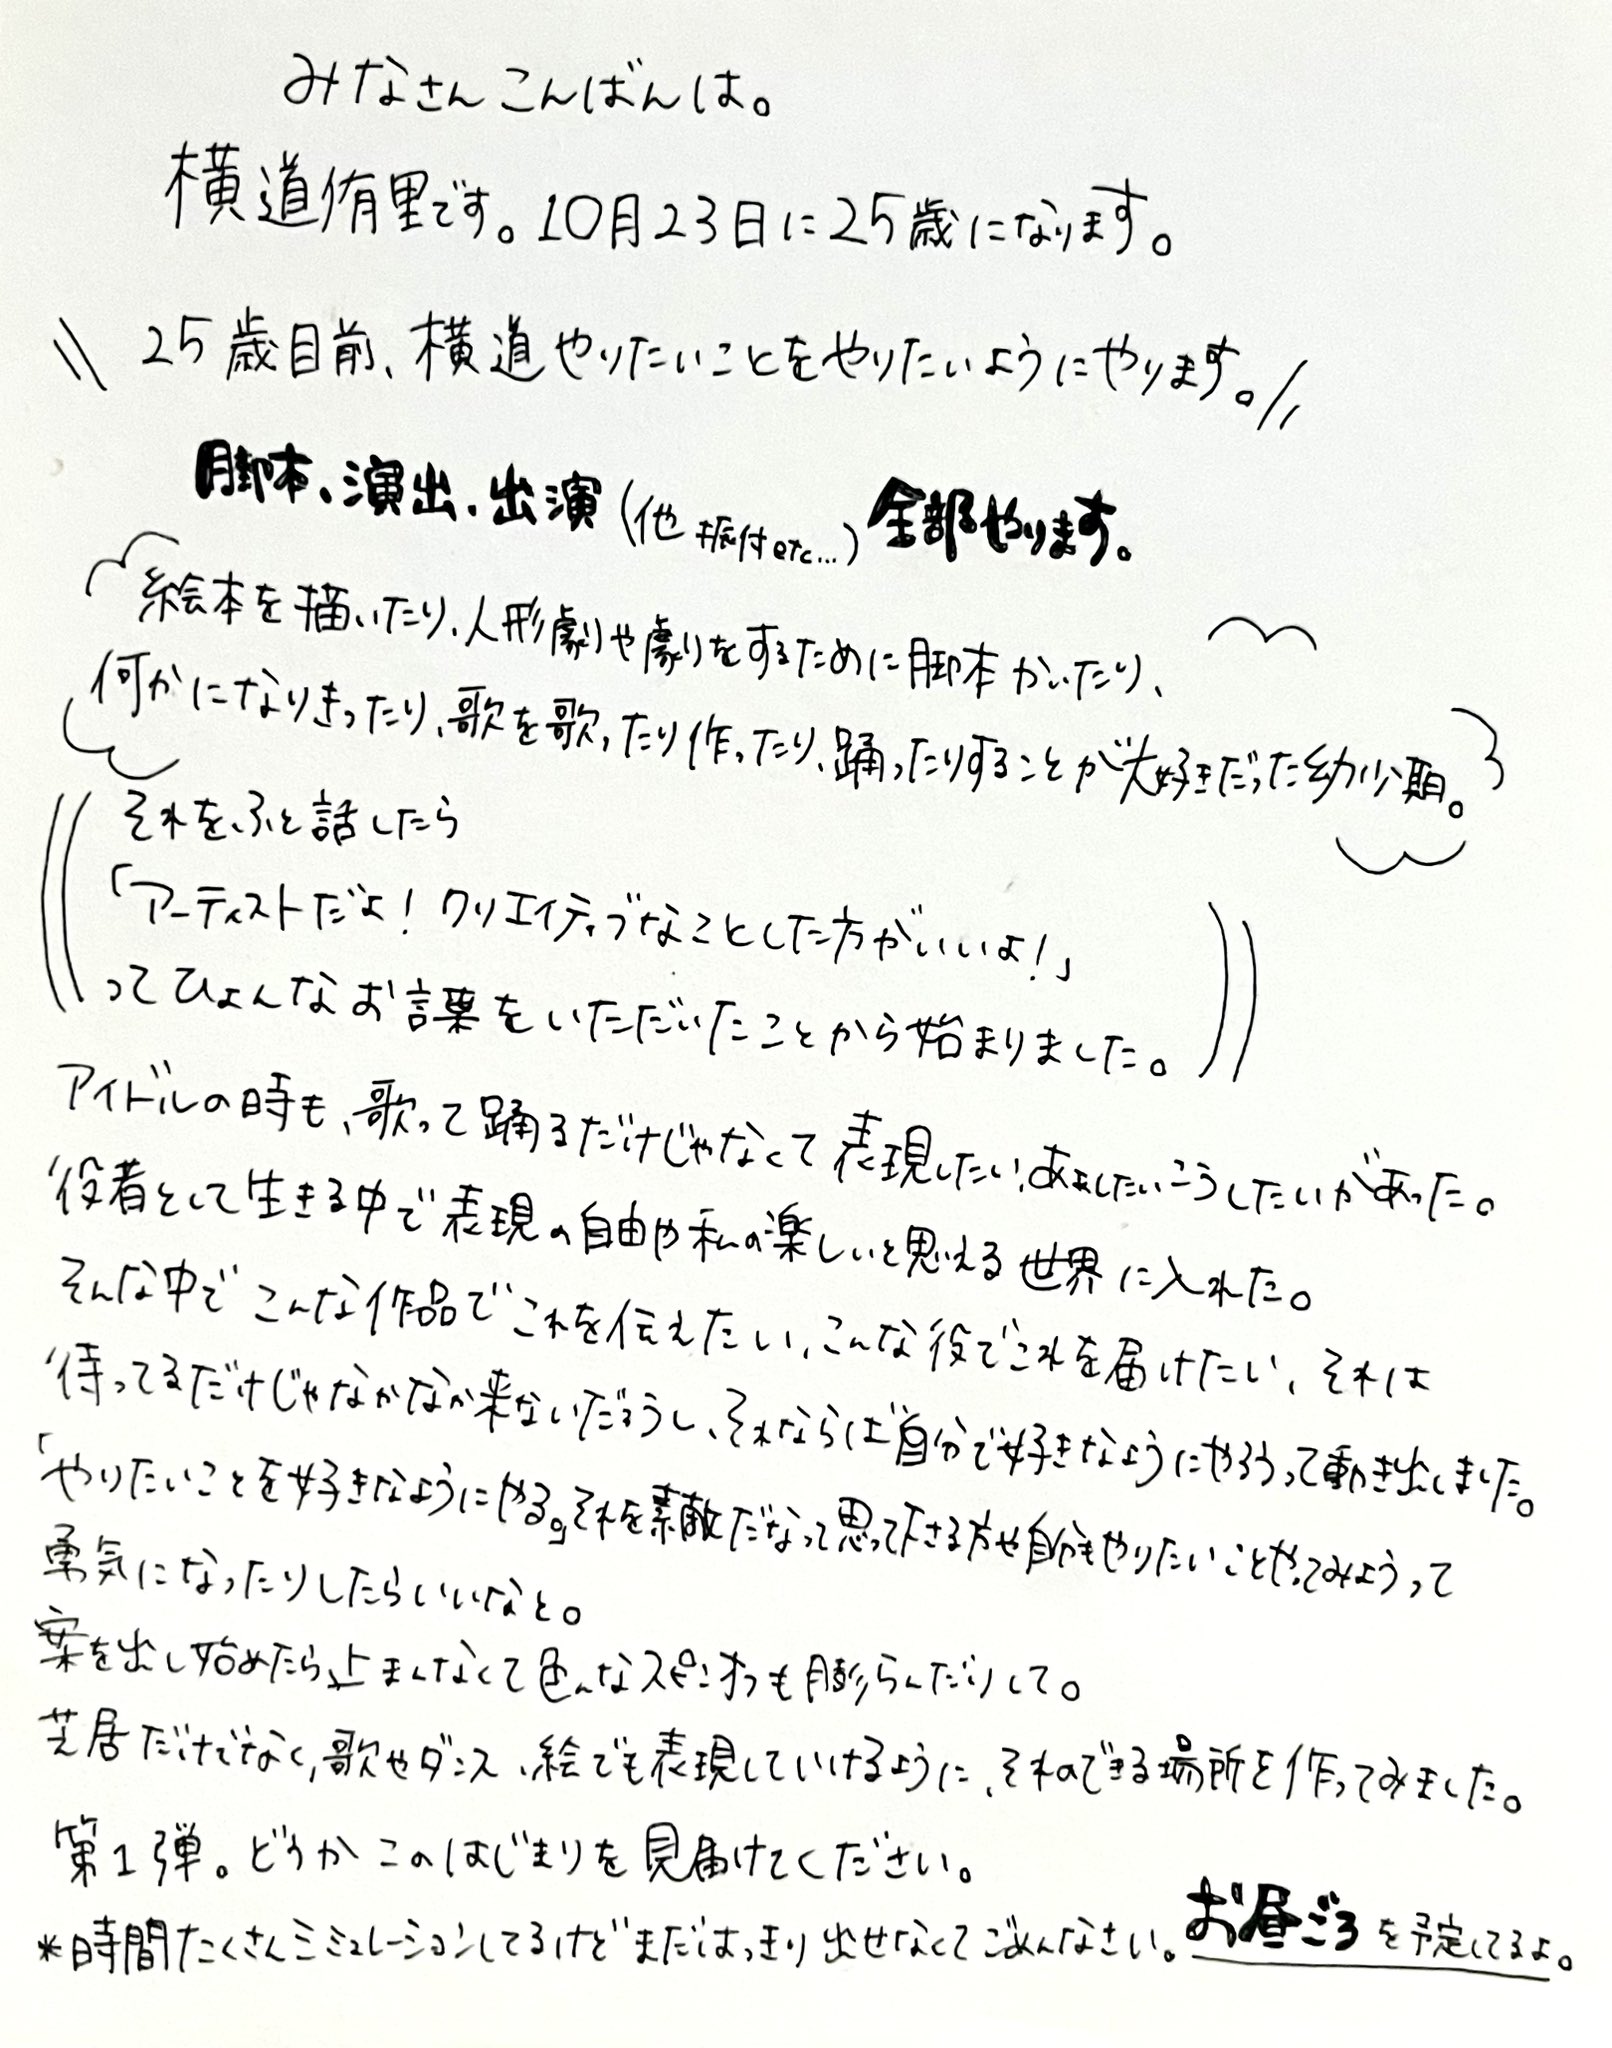 みなさんこんばんは。
横道侑里です。10月23日に25歳になります。
\\ 25歳目前、横道やりたいことをやりたいようにやります。//
脚本、演出、出演(他 振付etc...)全部やります。
絵本を描いたり、人形劇や劇をするために脚本かいたり、
何かになりきったり、歌を歌ったり作ったり、踊ったりすることが大好きだった幼少期。
それをふと話したら
「アーティストだよ!クリエイティブなことした方がいいよ!」
ってひょんなお言葉をいただいたことから始まりました。
アイドルの時も、歌って踊るだけじゃなくて表現したい、ああしたいこうしたいがあった。
役者として生きる中で表現の自由や私の楽しいと思える世界に入れた。
そんな中でこんな作品でこれを伝えたい、こんな役でこれを届けたい、それは
待ってるだけじゃなかなか来ないだろうし、それならば自分で好きなようにやろうって動き出しました。
「やりたいことを好きなようにやる。」それを素敵だなって思って下さる方や自分もやりたいことやってみようって
勇気になったりしたらいいなと。
案を出し始めたら止まんなくて色んなスピンオフも膨らんだりして。
芝居だけでなく、歌やダンス、絵でも表現していけるように、それのできる場所を作ってみました。
第1弾。どうかこのはじまりを見届けてください。
*時間たくさんミミュレーションしてるけどまだはっきり出せなくてごめんなさい。お昼ごろを予定してるよ。